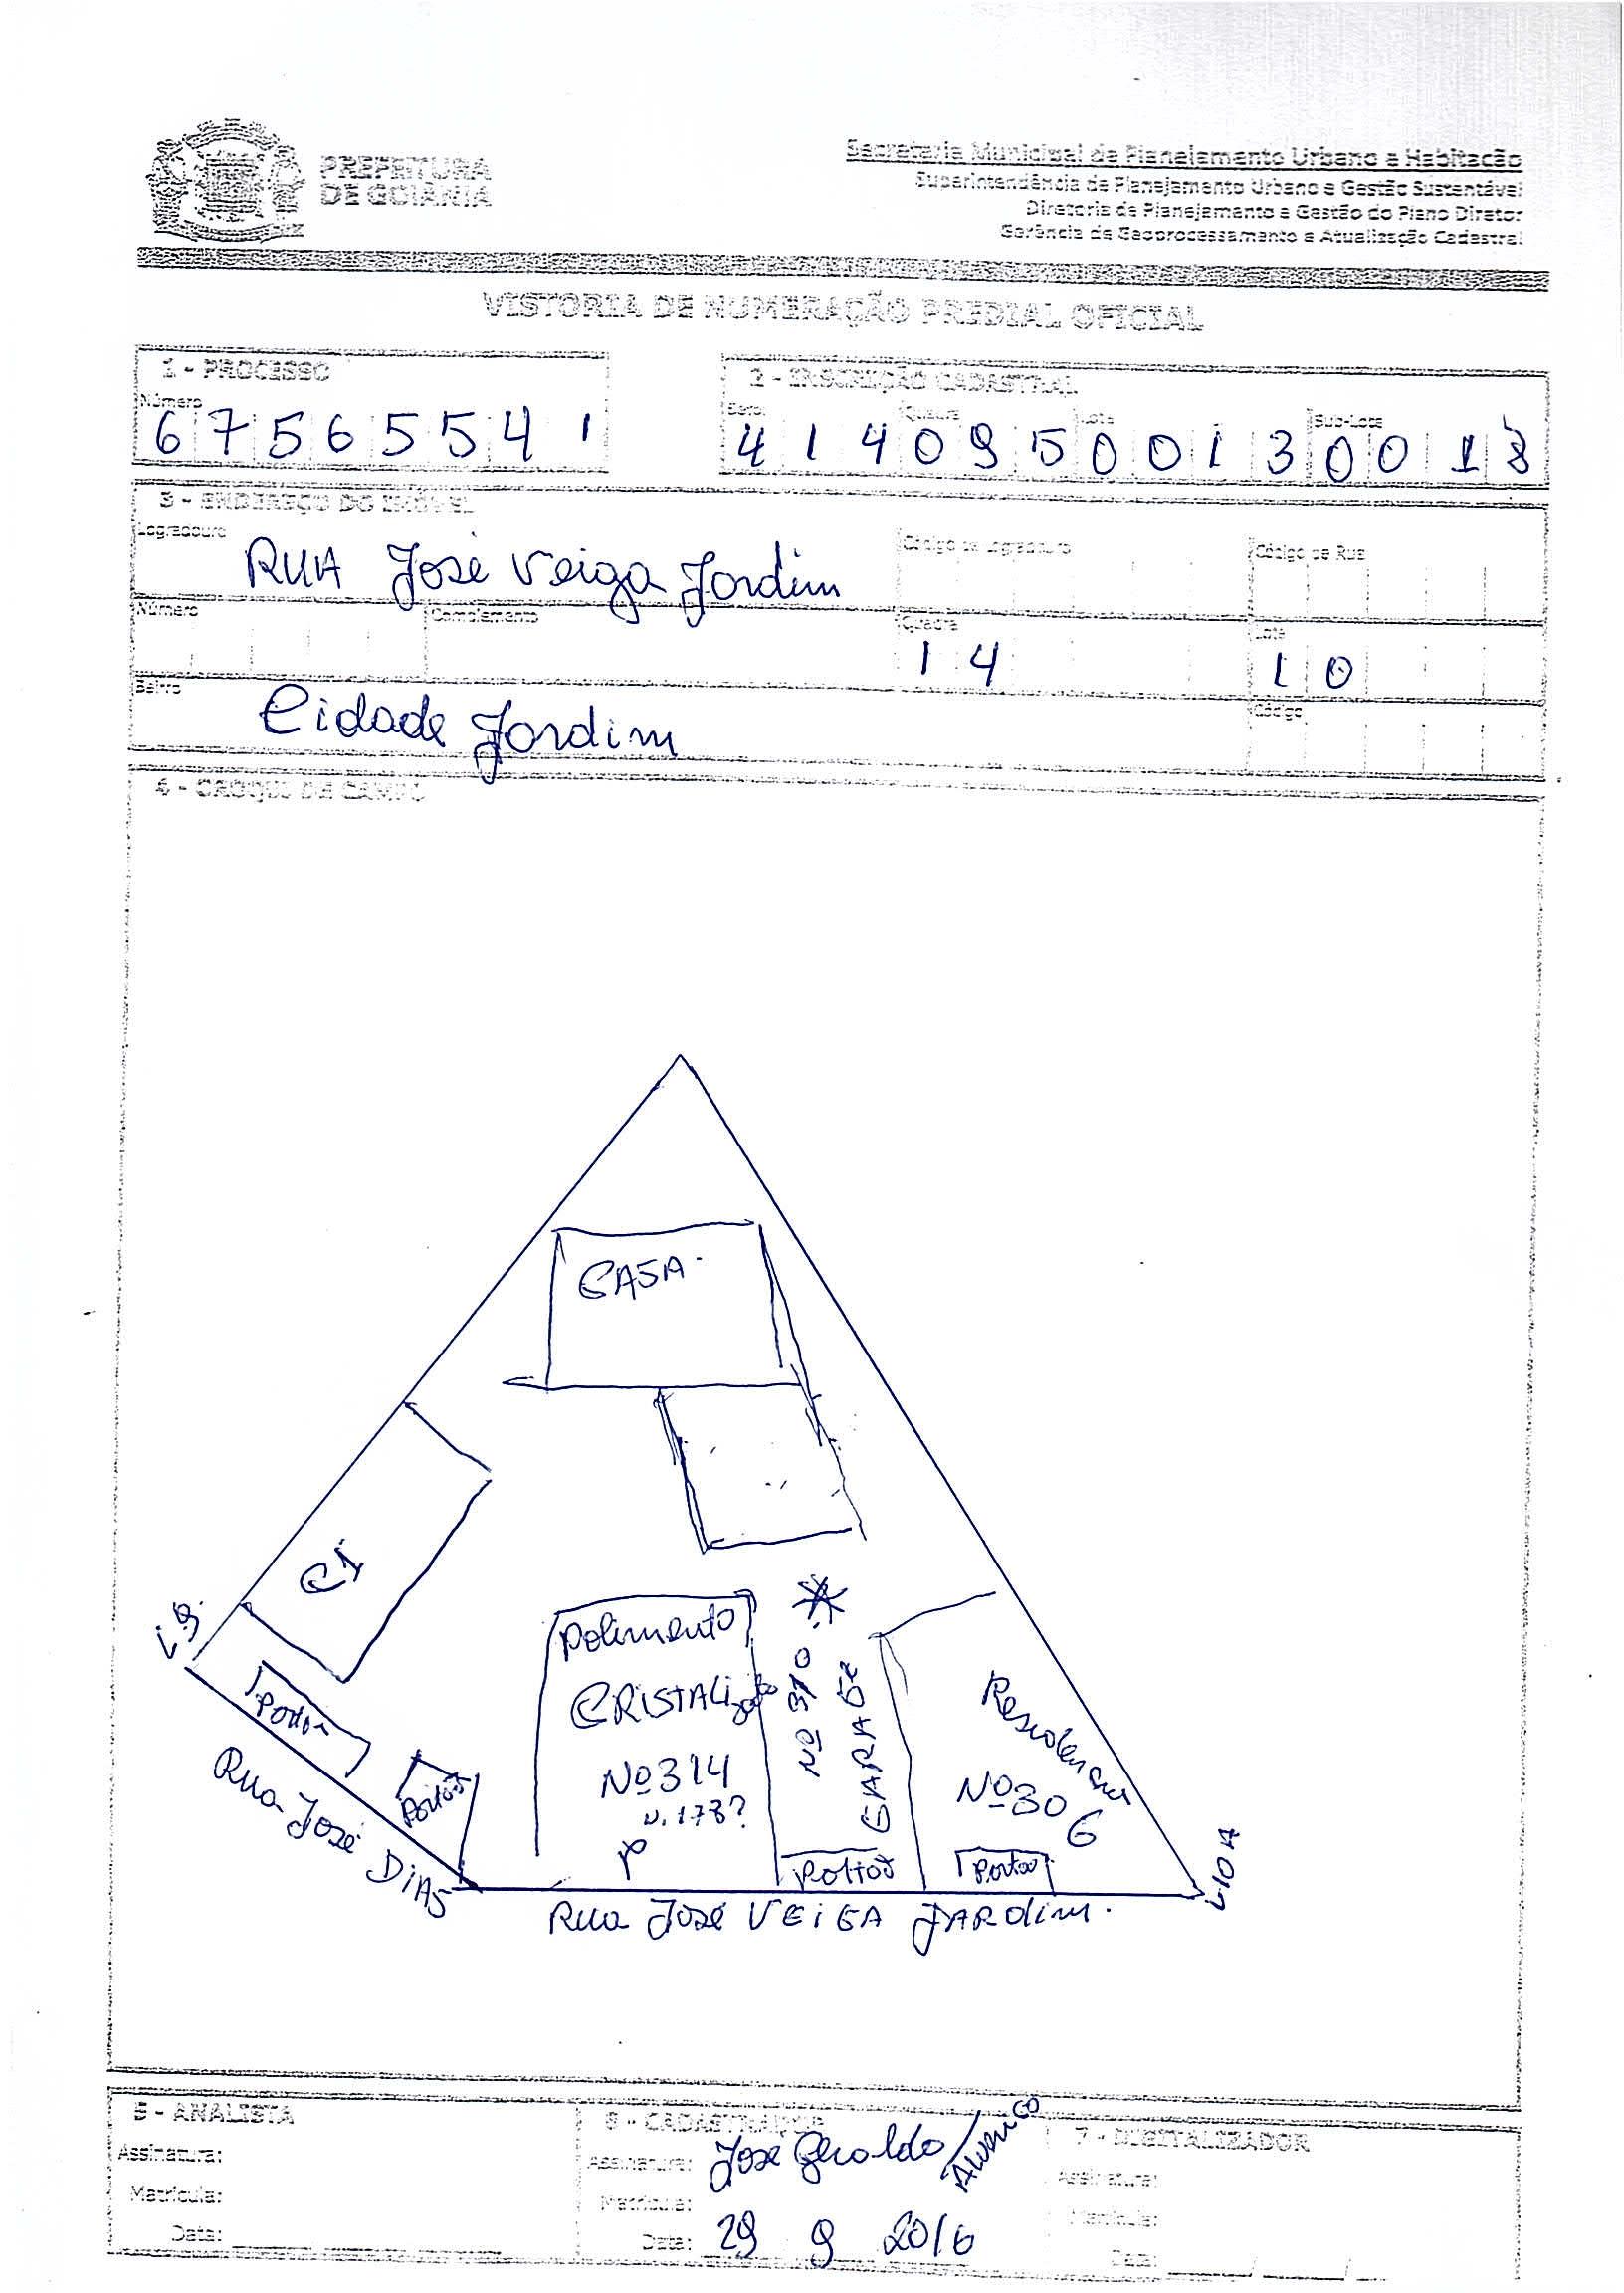 PREFEITURA
DE GOIÂNIA
Secretaria Municipal de Planejamento Urbano e Habitação
Superintendência de Planejamento Urbano e Gestão Sustentável
Diretoria de Planejamento e Gestão do Plano Diretor
Gerência de Geoprocessamento e Atualização Cadastral
VISTORIA DE NUMERAÇÃO PREDIAL OFICIAL
1 - PROCESSO
Número
6 7 5 6 5 5 4 1
2 - INSCRIÇÃO CADASTRAL
Setor Quadra Lote Sub-Lote
4 1 4 0 9 5 0 0 1 3 0 0 1
3 - ENDEREÇO DO IMÓVEL
Logradouro
RUA José Veiga Jardim
Código de Logradouro
Código de Rua
Número
Complemento
Quadra
1 4
Lote
1 0
Bairro
Cidade Jardim
Código
4 - CROQUI DE CAMPO
CASA
C1
L9.
Portão
Portão
Rua José DIAS
Polimento
CRISTALização
Nº 314
N. 178?
P
Nº 310 *
GARAGE
Portão
Residencia
Nº 306
Portão
L10A
Rua José VEIGA JARDim.
5 - ANALISTA
Assinatura:
Matrícula:
Data:
6 - CADASTRADOR
Assinatura: José Geraldo /
Matrícula:
Data: 29 9 2016
7 - DIGITALIZADOR
Assinatura:
Matrícula:
Data: